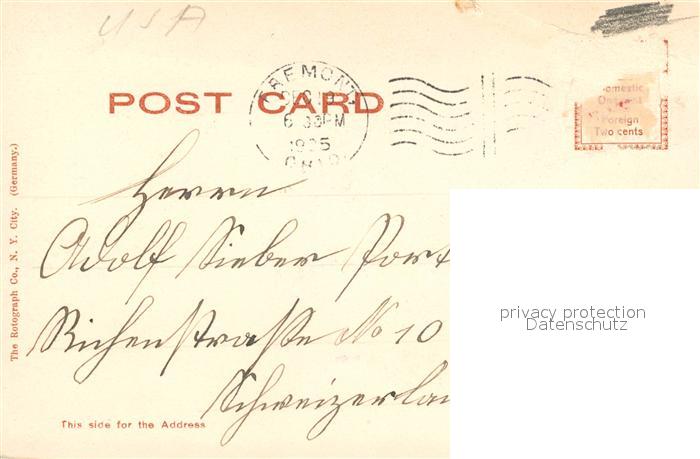 USA
POST CARD
FREMONT
DEC 19
6 30 PM
1905
OHIO
Domestic
One cent
Foreign
Two cents
The Rotograph Co., N. Y. City. (Germany.)
Herrn
Adolf Sieber Port
Richenstraße No 10
Schweizerlan
This side for the Address
privacy protection
Datenschutz